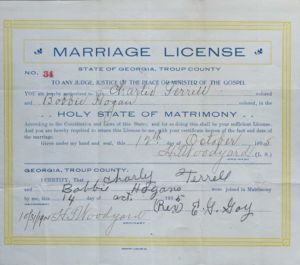 MARRIAGE LICENSE
STATE OF GEORGIA, TROUP COUNTY
No. 34
TO ANY JUDGE, JUSTICE OF THE PEACE OR MINISTER OF THE GOSPEL
YOU are hereby authorized to Charlie Terrell colored
and Bobbie Hogan colored, in the
HOLY STATE OF MATRIMONY
According to the Constitution and Laws of this State, and for so doing this shall be your sufficient License. And
you are hereby required to return this License to me with your certificate hereon of the fact and date of
the marriage.
Given under my hand and seal, this 12th October
H. T. Woodyard (L. S.)
GEORGIA, TROUP COUNTY.
I CERTIFY, That Charly Terrell
and Bobbie Hogans were joined in Matrimony
by me, this 14 day of oct.
H. T. Woodyard (Rev) E. G. Gay